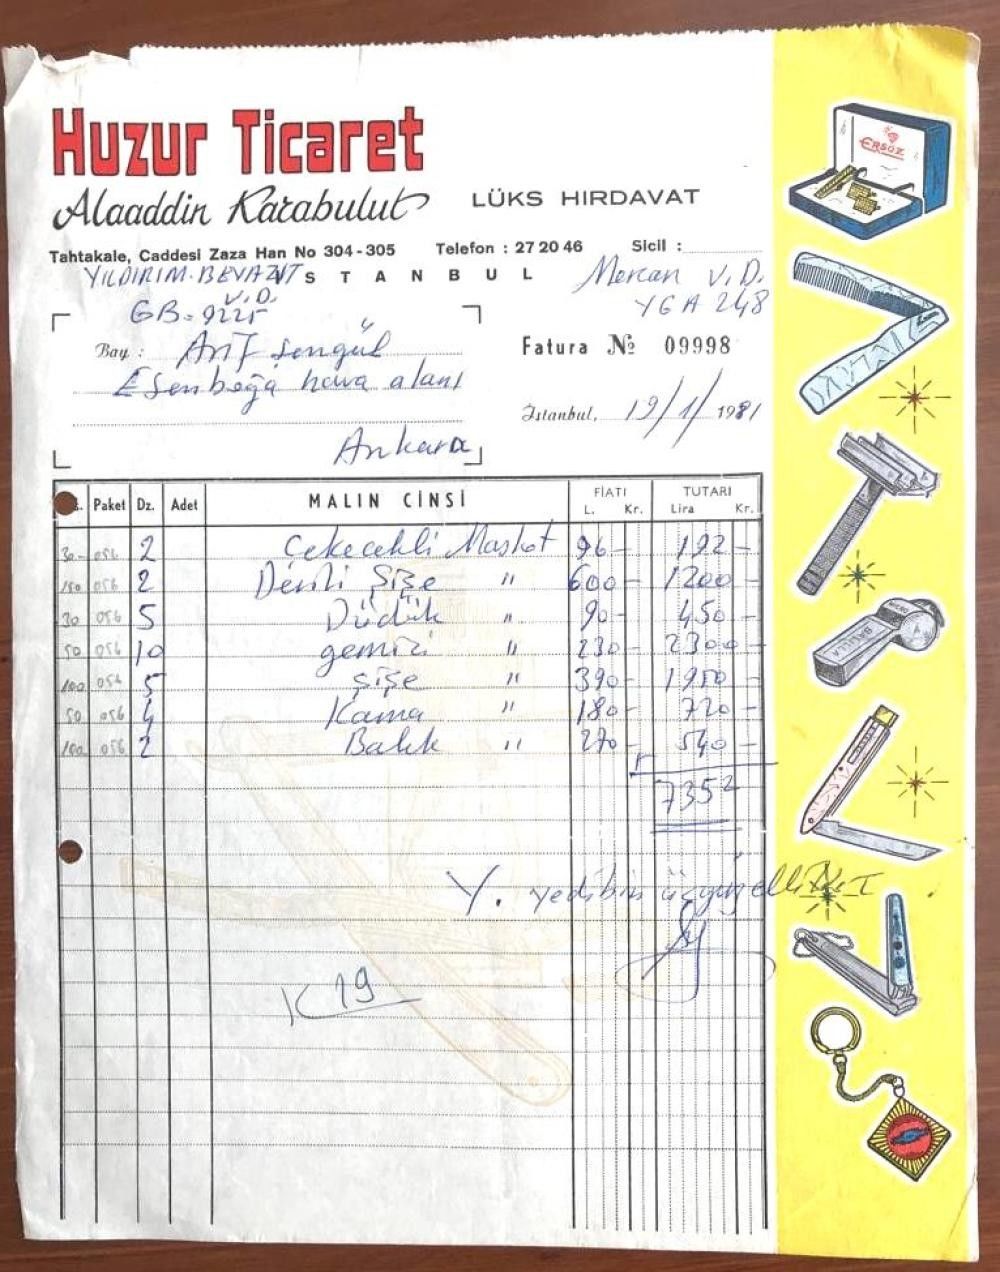 Huzur Ticaret
Alaaddin Karabulut LÜKS HIRDAVAT
Tahtakale, Caddesi Zaza Han No 304-305 Telefon : 27 20 46 Sicil :
YILDIRIM-BEYAZIT İSTANBUL Mercan V.D.
V.D. YGA 248
GB=9225
Bay : Arif Şengül
Fatura No 09998
Esenboğa hava alanı
İstanbul, 19/1/1981
Ankara
Paket Dz. Adet MALIN CİNSİ FİATI L. Kr. TUTARI Lira Kr.
30- 056 2 Çekecekli Maskot 96- 192-
150 056 2 Derili Şişe " 600- 1200-
30 056 5 Düdük " 90- 450-
50 056 10 gemici " 230- 2300-
100 056 5 şişe " 390- 1950-
50 056 4 Kama " 180- 720-
100 056 2 Balık " 270- 540-
7352
Y. yedibin üçyüzelliiki
K 19
ERSÖZ
MICRO
BALİLLA